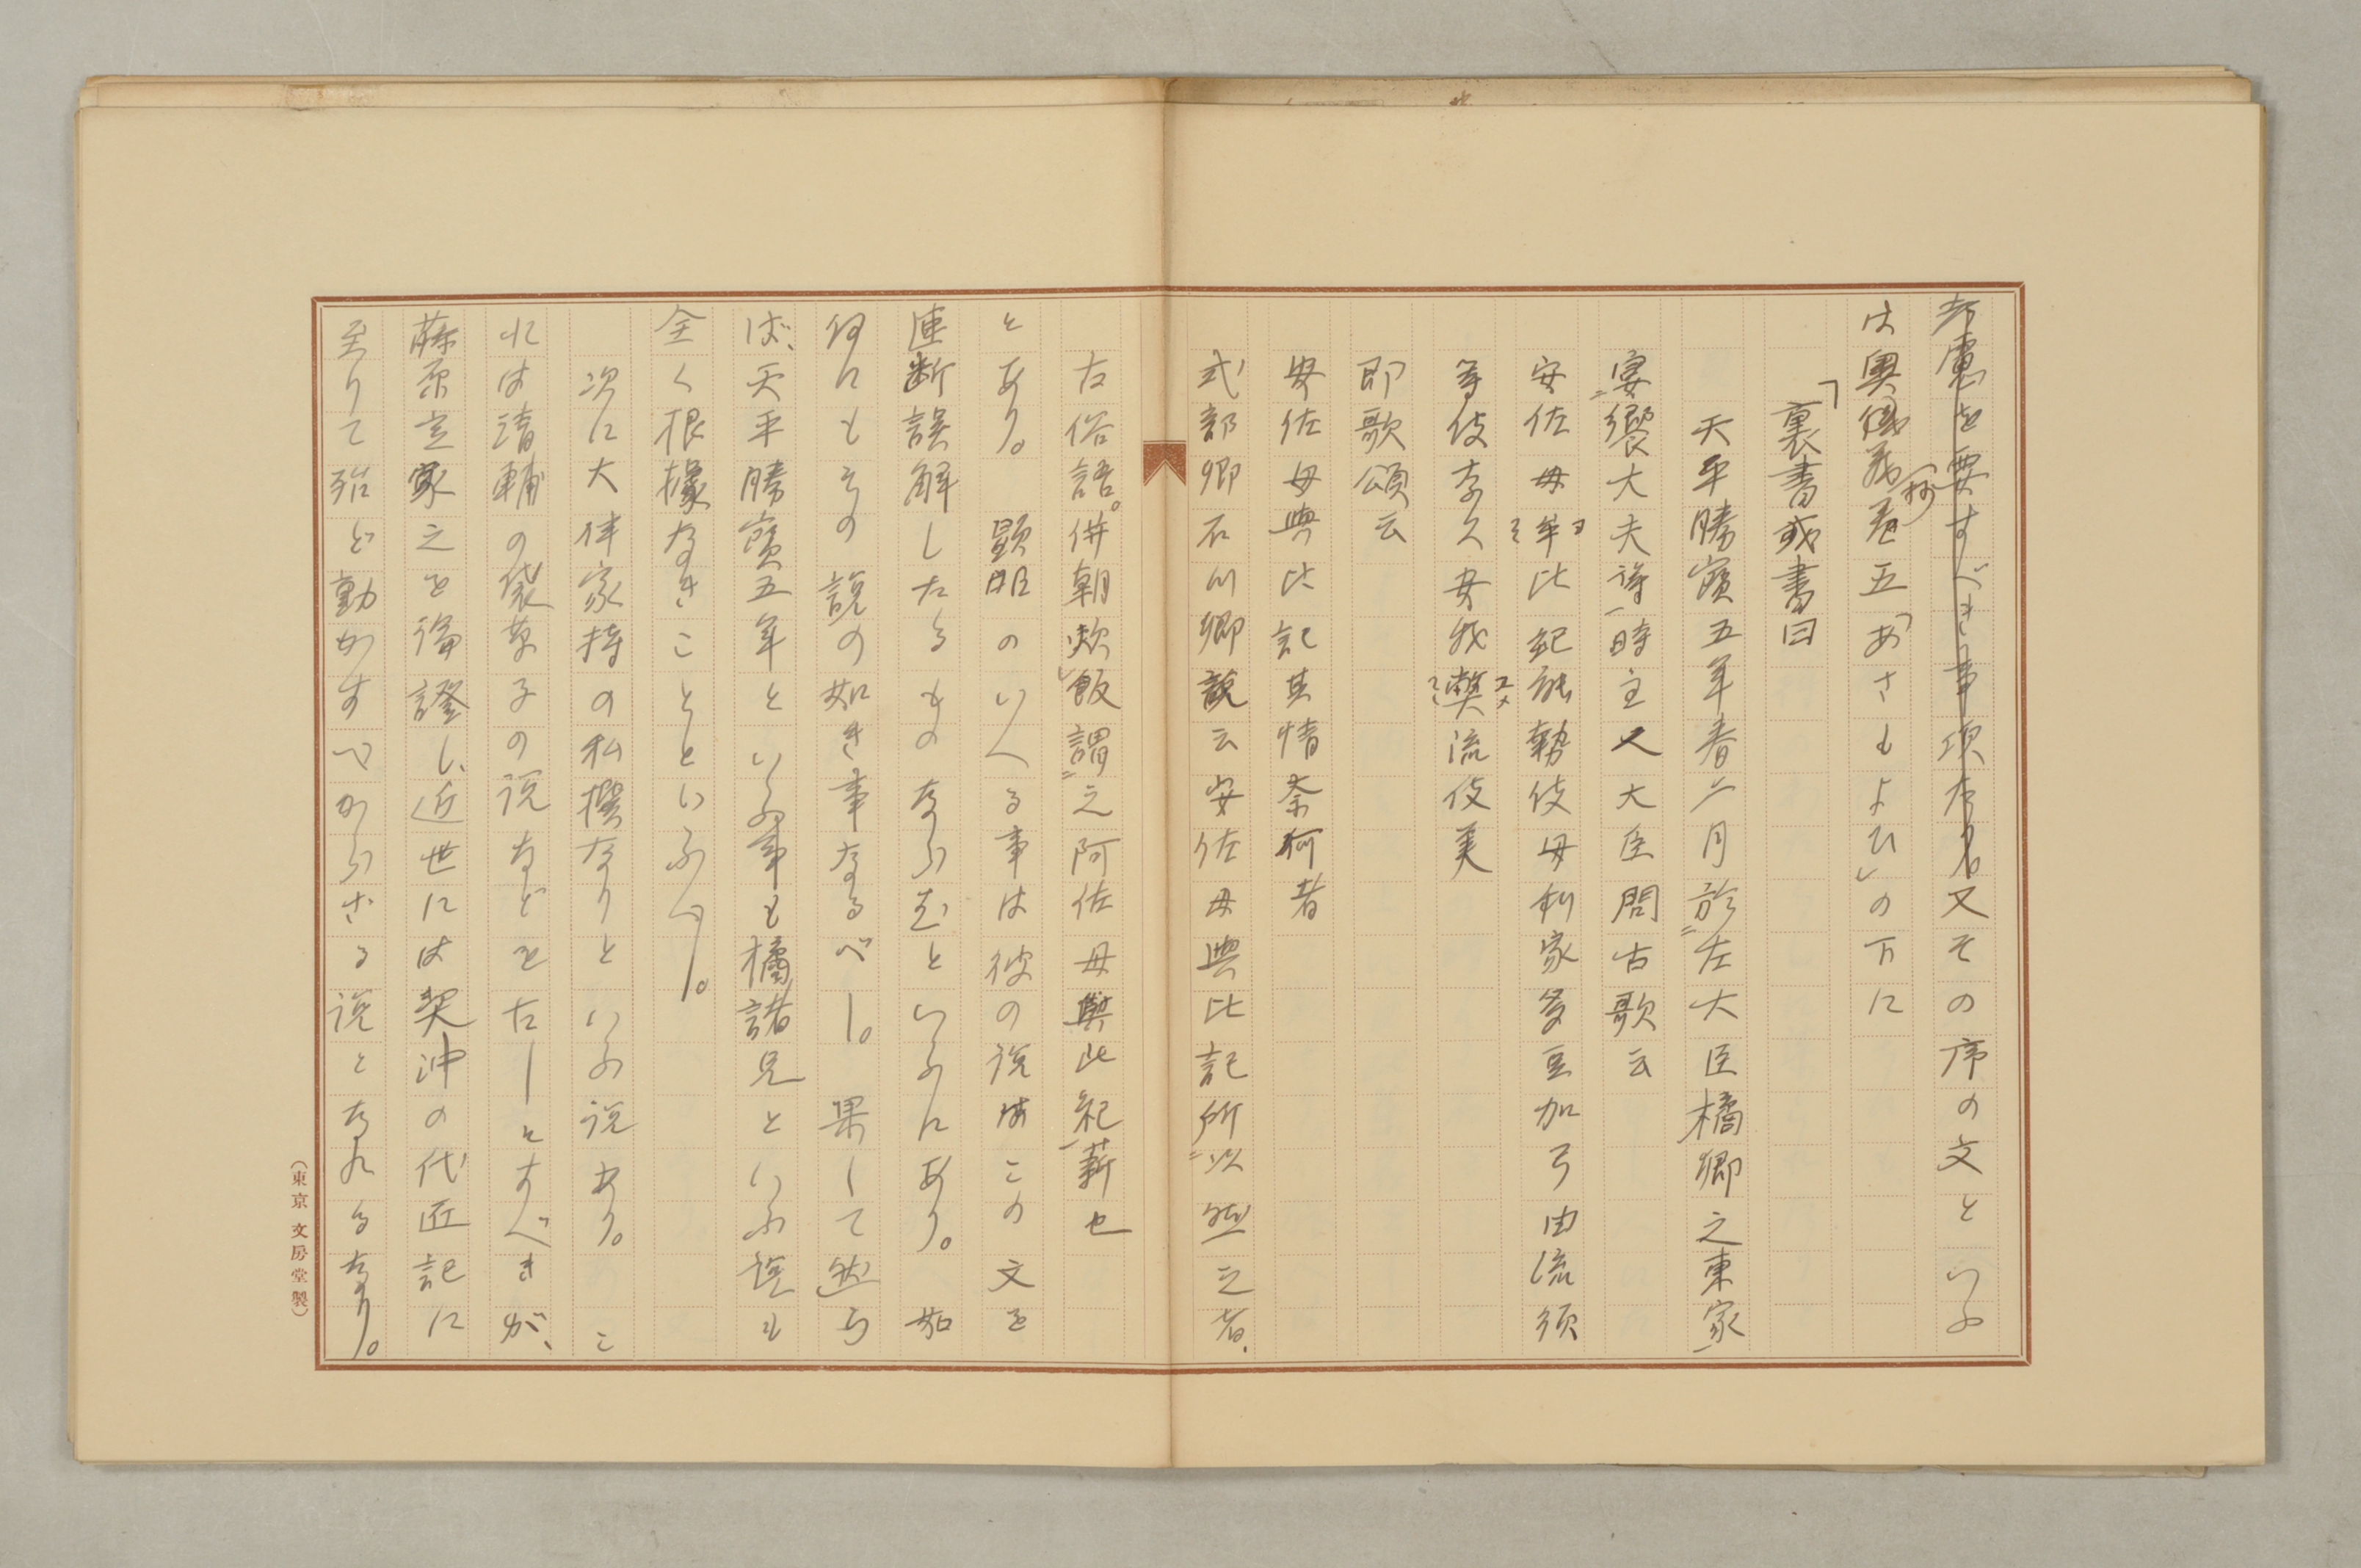 考慮を要すべき事項なり又その序の文といふ
は奥儀抄巻五「あさもよひ」の下に
「裏書或書曰
天平勝寶五年春二月於左大臣橘卿之東家
宴饗大夫等時主人大臣問古歌云
安佐母比紀能勢伎母利家多豆加弓由流須
等伎奈久安我流伎美
即歌頌云
安佐母與比記其情奈何者
式部卿石川卿説云安佐母與比記所以然之者
古俗語。併朝炊飯謂之阿佐母與比紀薪也
とあり。顕昭のいへる事は彼の説はこの文を
速断誤解したるものならむといふにあり。如
何にもその説の如き事なるべし。果して然ら
ば、天平勝寶五年といふ事も橘諸兄といふ説も
全く根據なきことといふべし。
次に大伴家持の私撰なりといふ説あり。こ
れは清輔の袋草子の説などを古しとすべきが、
藤原定家之を論證し、近世には契沖の代匠記に
至りて殆ど動かすべからざる説となれるなり。
(東京 文房堂製)